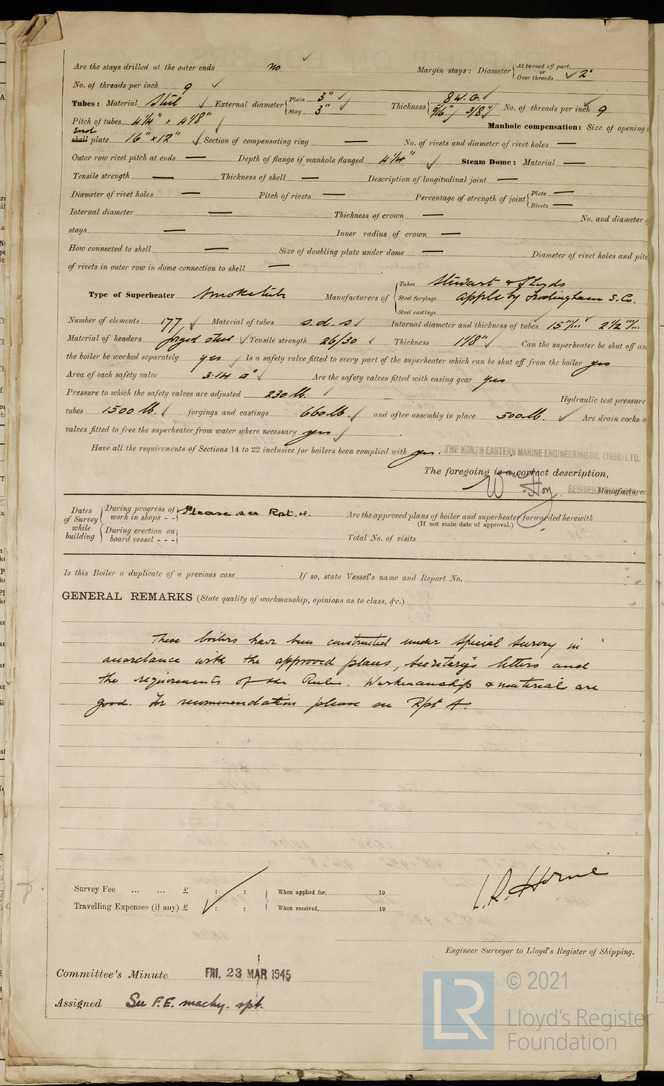 Are the stays drilled at the outer ends no Margin stays: Diameter { At turned off part, or Over threads 2"
No. of threads per inch 9
Tubes: Material Steel External diameter { Plain 3" Stay 3" Thickness { 8 W.G. 5/16" 3/8" No. of threads per inch 9
Pitch of tubes 4¼" × 4⅛" Manhole compensation: Size of opening
End shell plate 16" × 12" Section of compensating ring — No. of rivets and diameter of rivet holes —
Outer row rivet pitch at ends — Depth of flange if manhole flanged 4¼" Steam Dome: Material —
Tensile strength — Thickness of shell — Description of longitudinal joint —
Diameter of rivet holes — Pitch of rivets — Percentage of strength of joint { Plate — Rivets —
Internal diameter — Thickness of crown — No. and diameter
stays — Inner radius of crown —
How connected to shell — Size of doubling plate under dome — Diameter of rivet holes and pitch
of rivets in outer row in dome connection to shell —
Type of Superheater Smoketube Manufacturers of { Tubes Stewart & Lloyds
Steel forgings Appleby Frodingham S. Co.
Steel castings
Number of elements 177 Material of tubes s.d.s. Internal diameter and thickness of tubes 15 m/m 2½ m/m
Material of headers forged steel Tensile strength 26/30 Thickness 1⅛" Can the superheater be shut off and
the boiler be worked separately yes Is a safety valve fitted to every part of the superheater which can be shut off from the boiler yes
Area of each safety valve 3.14 □" Are the safety valves fitted with easing gear yes
Pressure to which the safety valves are adjusted 230 lb. Hydraulic test pressure
tubes 1500 lb. forgings and castings 660 lb. and after assembly in place 500 lb. Are drain cocks
valves fitted to free the superheater from water where necessary yes
Have all the requirements of Sections 14 to 22 inclusive for boilers been complied with yes. THE NORTH EASTERN MARINE ENGINEERING CO. (1938) LTD.
The foregoing is a correct description,
RESIDENT Manufacturer
Dates of Survey while building { During progress of work in shops - - Please see Rpt. 4. Are the approved plans of boiler and superheater forwarded herewith
(If not state date of approval.)
During erection on board vessel - - - Total No. of visits
Is this Boiler a duplicate of a previous case If so, state Vessel's name and Report No.
GENERAL REMARKS (State quality of workmanship, opinions as to class, &c.)
These boilers have been constructed under Special Survey in
accordance with the approved plans, Secretary's letters and
the requirements of the Rules. Workmanship & materials are
good. For recommendation please see Rpt 4.
Survey Fee ... ... £ : : When applied for, 19
Travelling Expenses (if any) £ : : When received, 19
L. R. Horne
Engineer Surveyor to Lloyd's Register of Shipping.
Committee's Minute FRI. 23 MAR 1945
Assigned See F.E. machy. rpt.
© 2021
Lloyd's Register
Foundation
LR